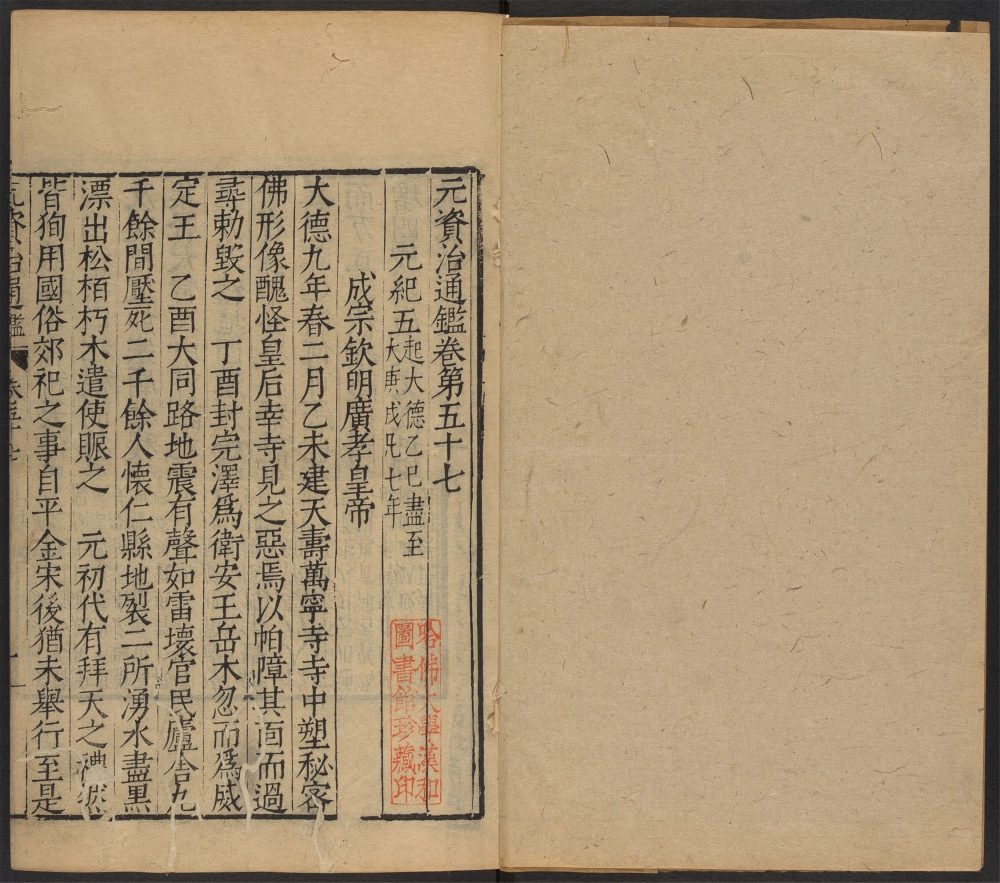 元資治通鑑卷第五十七
元紀五起大德乙巳盡至
大庚戌凡七年
成宗欽明廣孝皇帝
大德九年春二月乙未建天壽萬寧寺寺中塑秘密
佛形像醜怪皇后幸寺見之惡焉以帕障其面而過
尋勅毀之 丁酉封完澤爲衛安王岳木忽而爲威
定王 乙酉大同路地震有聲如雷壞官民廬舍九
千餘間壓死二千餘人懷仁縣地裂二所湧水盡黑
漂出松栢朽木遣使賑之 元初代有拜天之禮然
皆狥用國俗郊祀之事自平金宋後猶未舉行至是
元資治通鑑 卷五十七 一
哈佛大學漢和
圖書館珍藏印